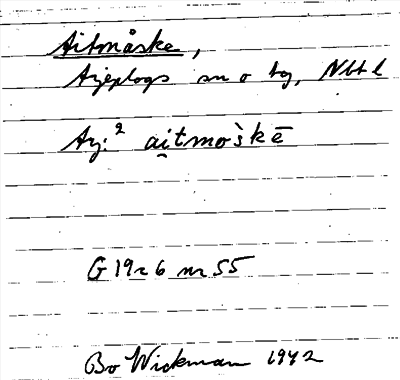 Aitmåske,
Arjeplogs sn o tg, Nbtl
Arj:² ai̯tmo`skē
G 19 r 6 nr 55
Bo Wickman 1942